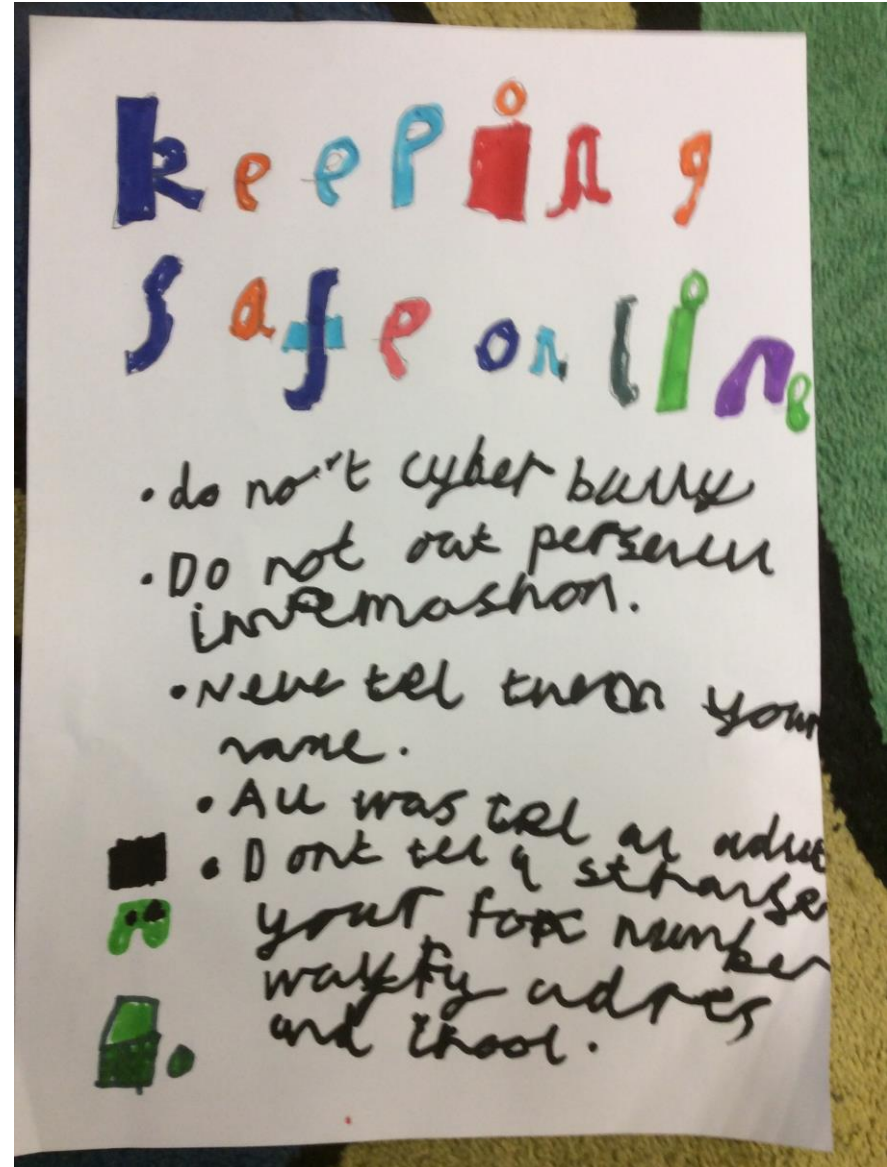 keeping
safe online
• do no't cyber bully
• Do not out persenul
infemashon.
• Neve tel them your
name.
• All was tel an adult
• Dont tell a stranse
your fone number
wayfy adres
and shool.